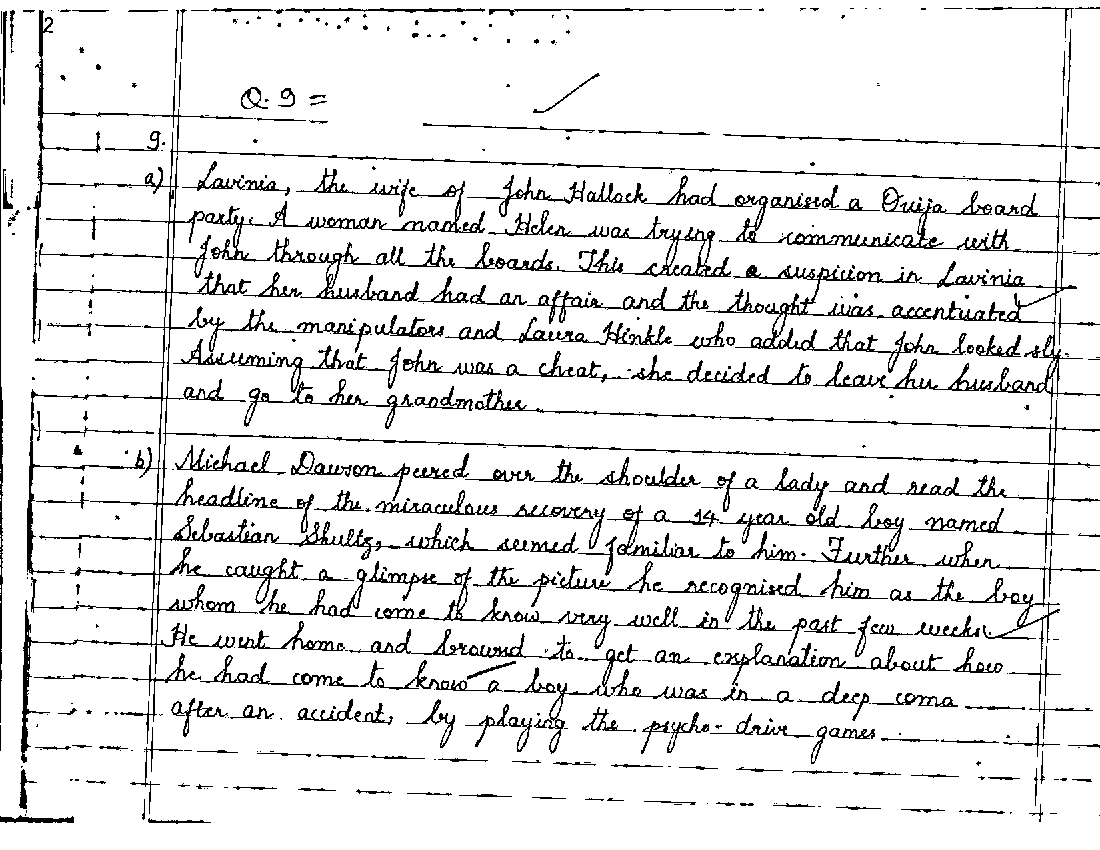 2
Q. 9 =
9.
a) Lavinia, the wife of John Hallock had organised a Ouija board
party. A woman named Helen was trying to communicate with
John through all the boards. This created a suspicion in Lavinia
that her husband had an affair and the thought was accentuated
by the manipulators and Laura Hinkle who added that John looked sly.
Assuming that John was a cheat, she decided to leave her husband
and go to her grandmother.
b) Michael Dawson peered over the shoulder of a lady and read the
headline of the miraculous recovery of a 14 year old boy named
Sebastian Shultz, which seemed familiar to him. Further when
he caught a glimpse of the picture he recognised him as the boy
whom he had come to know very well in the past few weeks.
He went home and browsed to get an explanation about how
he had come to know a boy who was in a deep coma
after an accident, by playing the psycho-drive games.